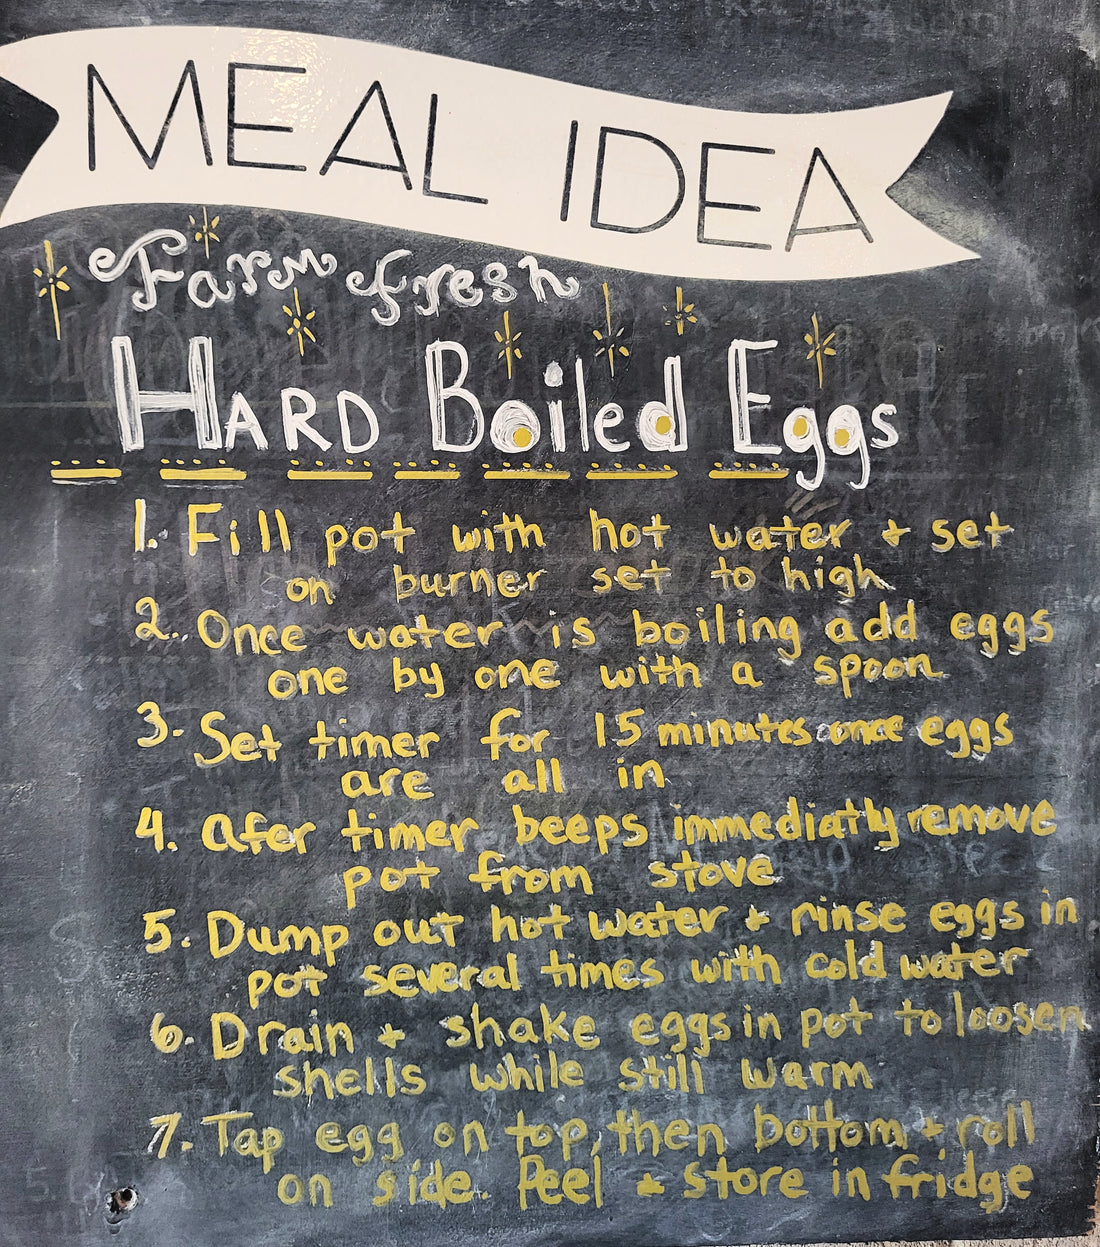 MEAL IDEA
Farm fresh
HARD Boiled Eggs
1. Fill pot with hot water + set
on burner set to high
2. Once water is boiling add eggs
one by one with a spoon
3. Set timer for 15 minutes once eggs
are all in
4. afer timer beeps immediatly remove
pot from stove
5. Dump out hot water + rinse eggs in
pot several times with cold water
6. Drain + shake eggs in pot to loosen
shells while still warm
7. Tap egg on top, then bottom + roll
on side. Peel + store in fridge